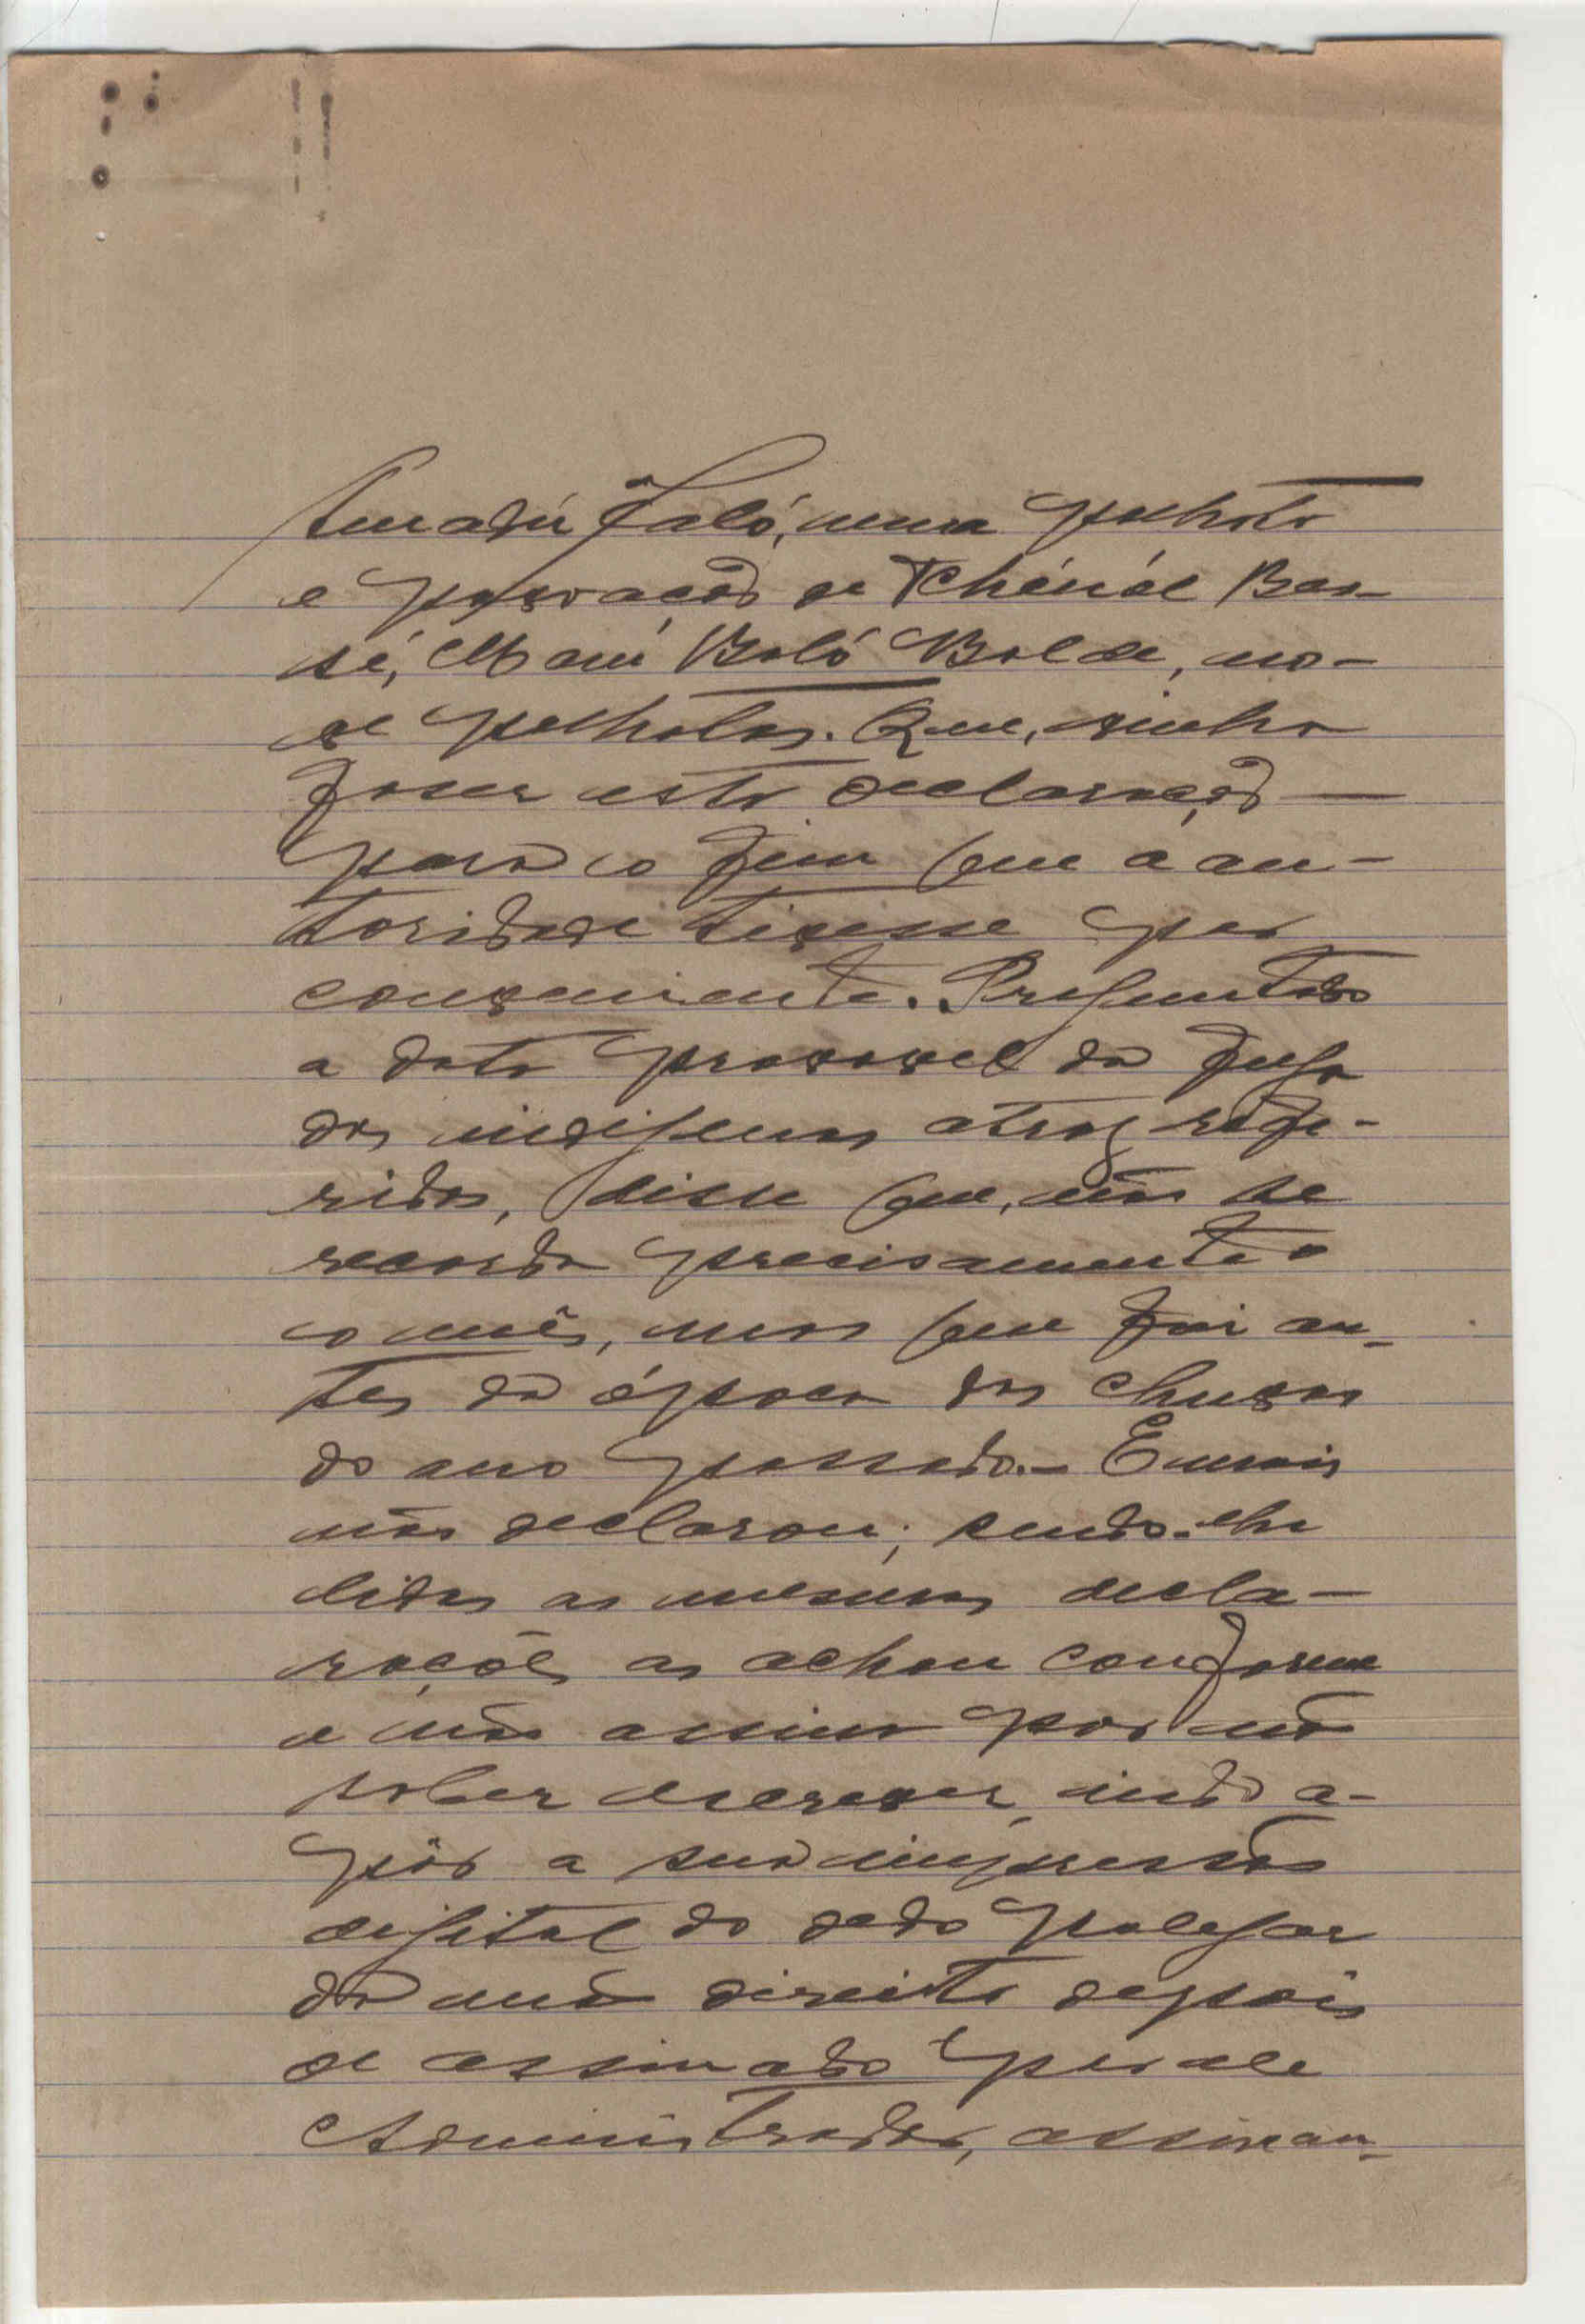 Amadú Jaló, uma palhota
e povoação de Tchénál Bas-
sé, Mamú Baló Balde, no-
ve palhotas. Que, vinha
fazer esta declaração —
para o fim que a au-
toridade tivesse por
conveniente. Preguntado
a data provavel da fuga
dos indigenas atraz refe-
ridos, disse que, não se
recorda precisamente o
o mês, mas que foi an-
tes da época das chuvas
do ano passado.- E mais
não declarou; sendo-lhe
lidas as mesmas decla-
rações as achou conforme
e não assina por não
saber escrever, indo a-
pôr a sua impressão
digital do dedo polegar
da mão direita depois
de assinado por ele
Administrador, assinan-